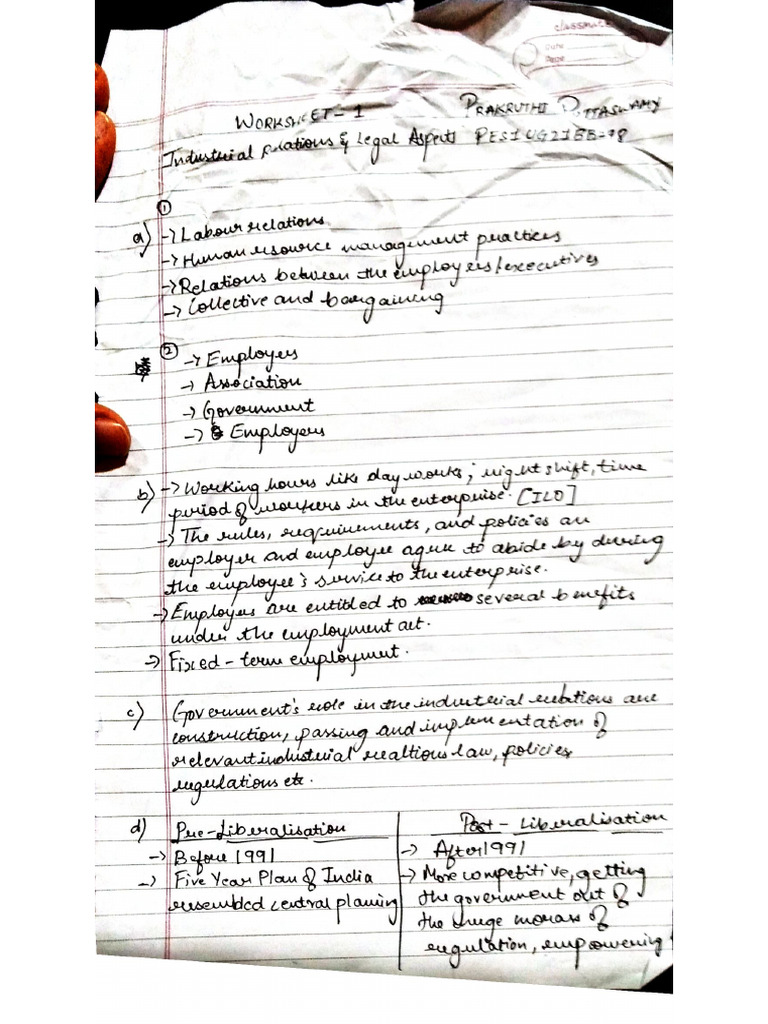 classmate
Date
Page
WORKSHEET - 1 PRAKRUTHI PUTTASWAMY
Industrial Relations & Legal Aspects PES1UG21BB-78
①
a) → Labour relations
→ Human resource management practices
→ Relations between the employers/executives
→ Collective and bargaining
②
→ Employers
→ Association
→ Government
→ Employers
b) → Working hours like day works; night shift, time
period of workers in the enterprise. [ILO]
→ The rules, requirements, and policies an
employer and employee agree to abide by during
the employee's service to the enterprise.
→ Employers are entitled to several benefits
under the employment act.
→ Fixed-term employment.
c) Government's role in the industrial relations are
construction, passing and implementation of
relevant industrial realtions law, policies
regulations etc.
d) Pre-Liberalisation Post-Liberalisation
→ Before 1991 → After 1991
→ Five Year Plan of India → More competitive, getting
resembled central planning the government out of
the huge morass of
regulation, empowering